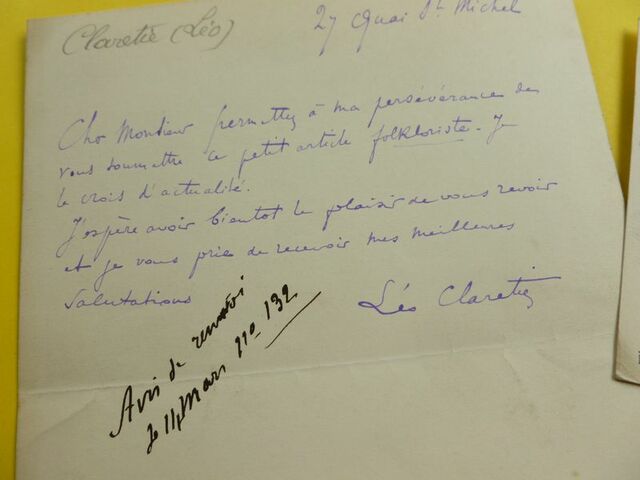 Claretie (Léo)
27 Quai St Michel
Cher Monsieur permettez à ma persévérance de
vous soumettre ce petit article folkloriste. Je
le crois d'actualité.
J'espère avoir bientot le plaisir de vous revoir
et je vous prie de recevoir mes meilleures
salutations
Léo Claretie
Avis de renvoi
le 14 Mars no 132